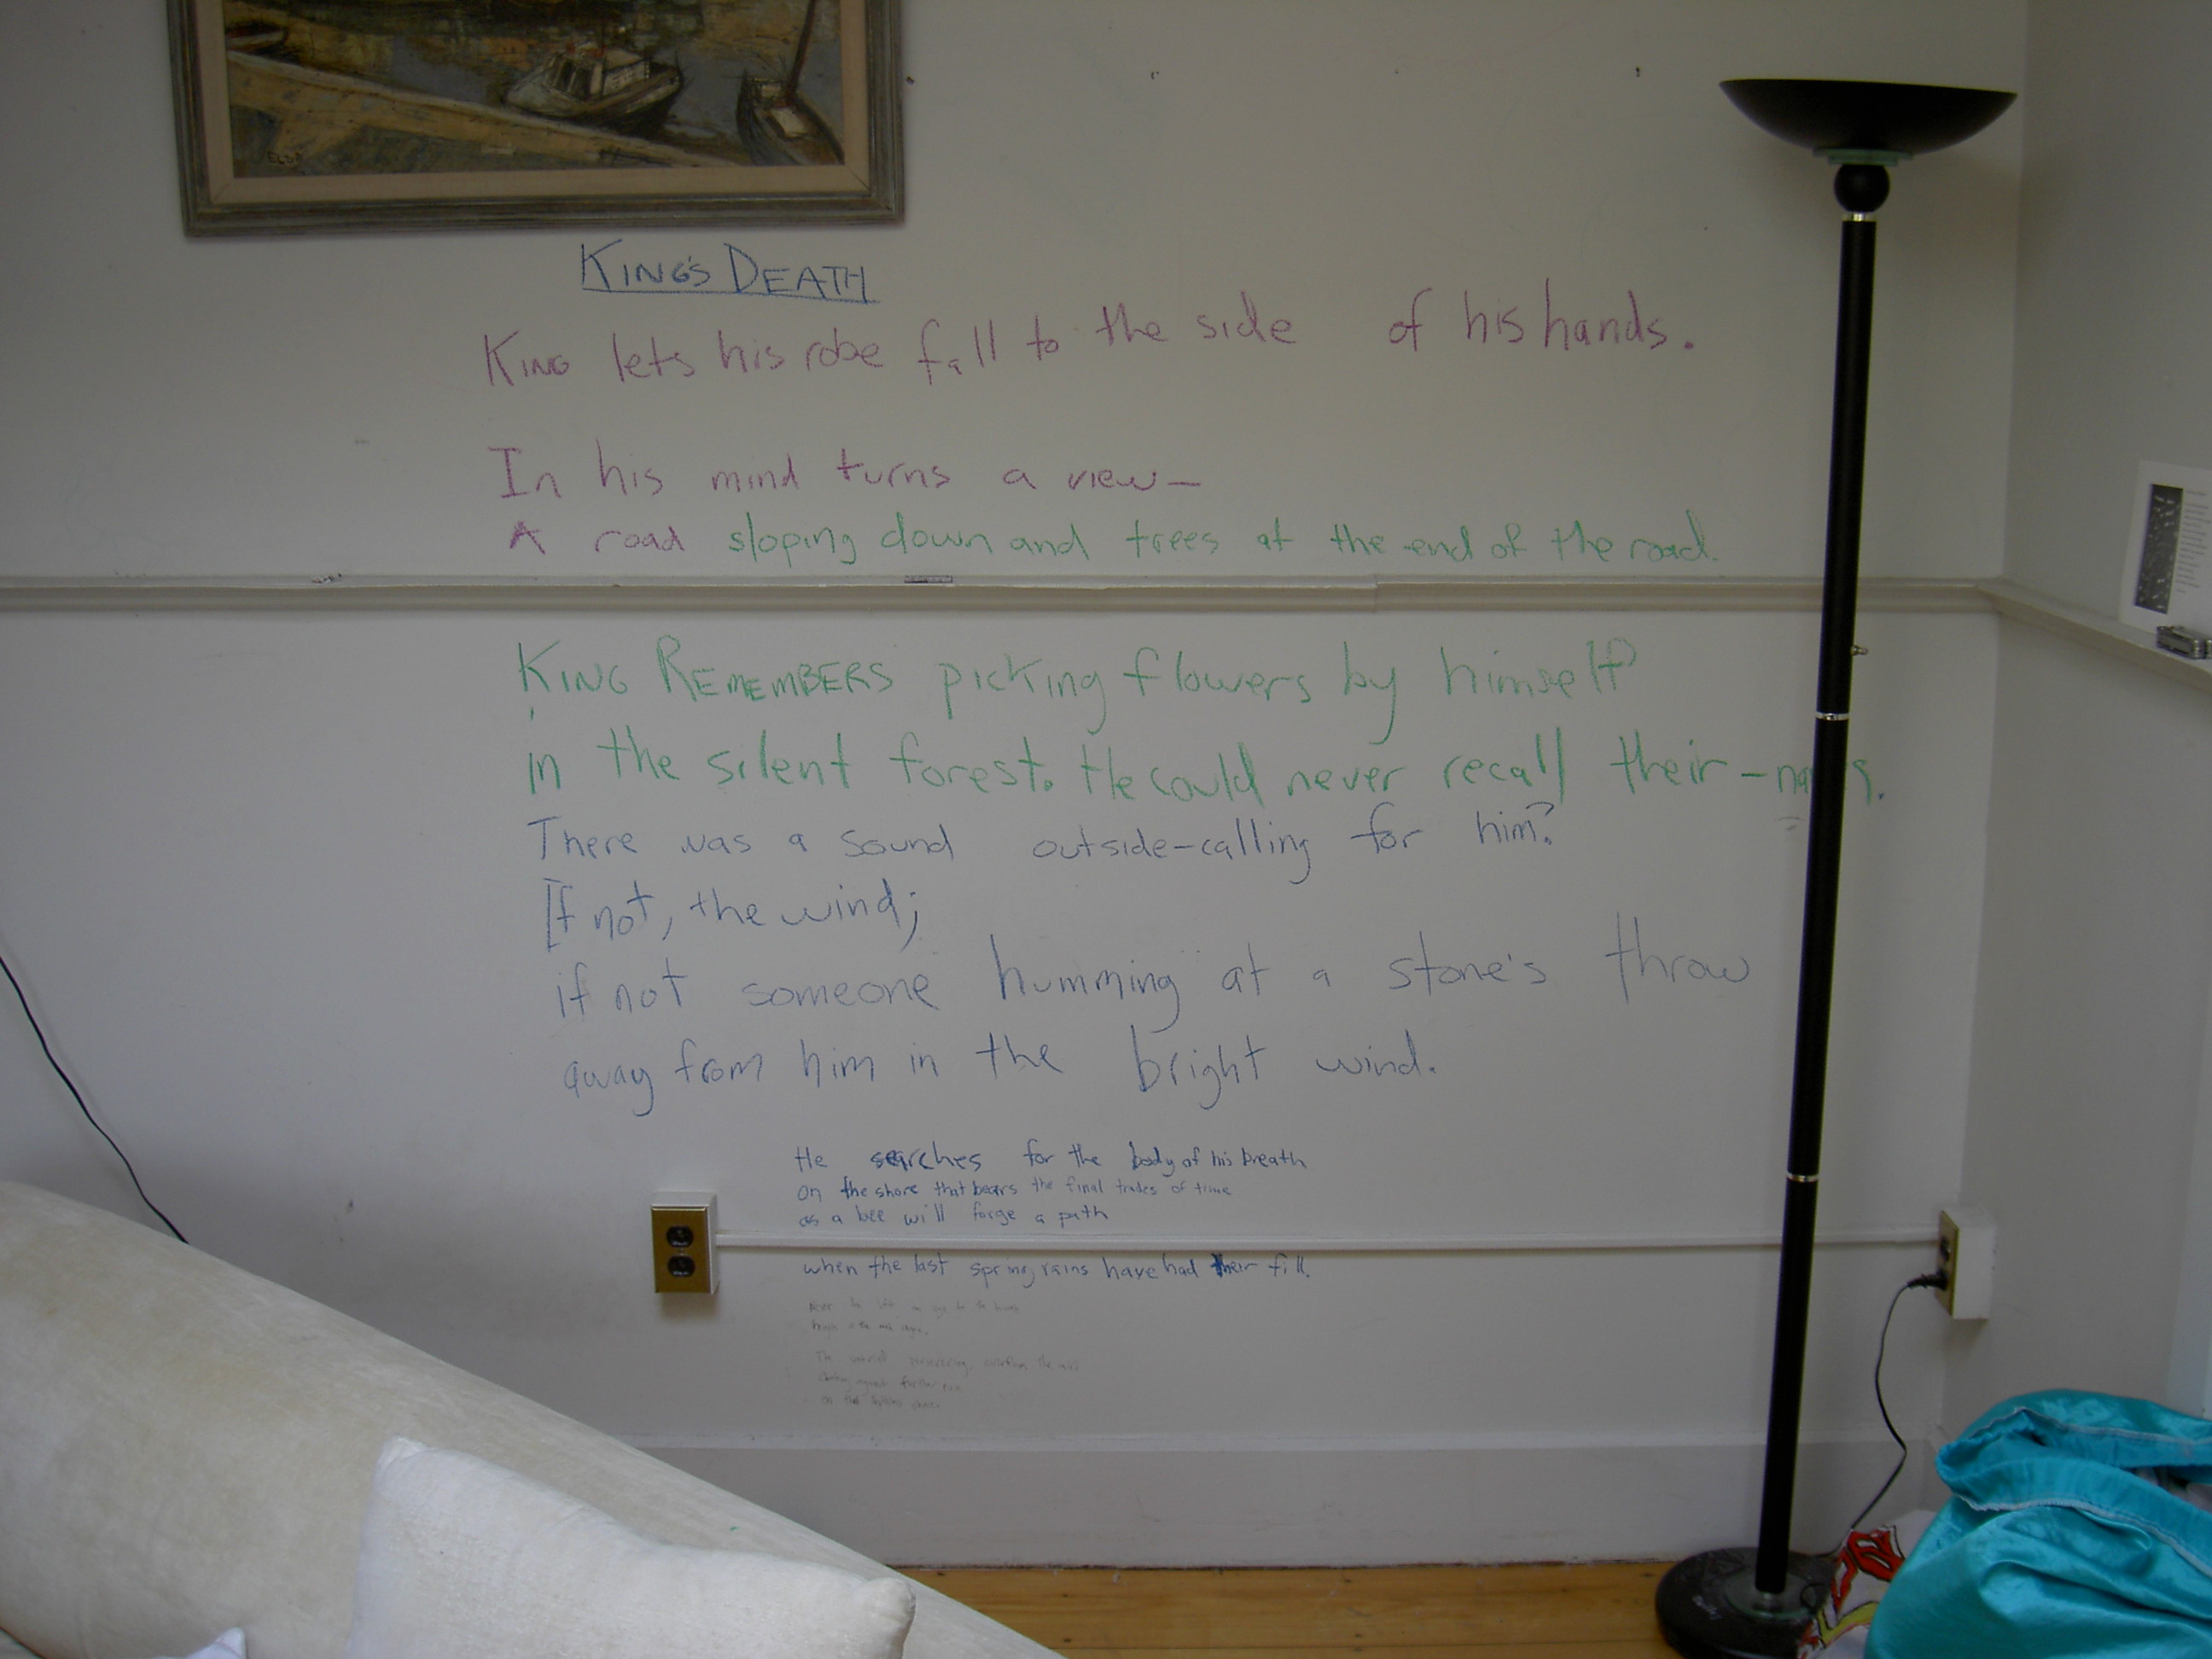 KING'S DEATH
KING lets his robe fall to the side of his hands.
In his mind turns a view—
A road sloping down and trees at the end of the road.
KING REMEMBERS picking flowers by himself
in the silent forest. He could never recall their –
There was a sound outside–calling for him?
If not, the wind;
if not someone humming at a stone's throw
away from him in the bright wind.
He searches for the body of his breath
on the shore that bears the final trades of time
as a bee will forge a path
when the last spring rains have had their fill.